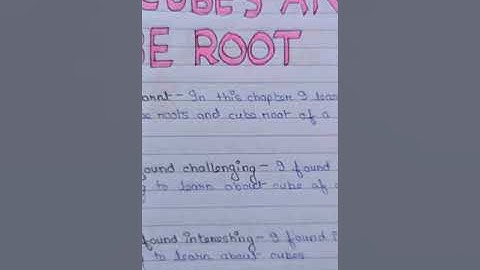 CUBE'S AN
BE ROOT
arnt - In this chapter I lear
be roots and cube root of a
found challenging - I found
g to learn about cube of a
found interesting - I found i
g to learn about cubes